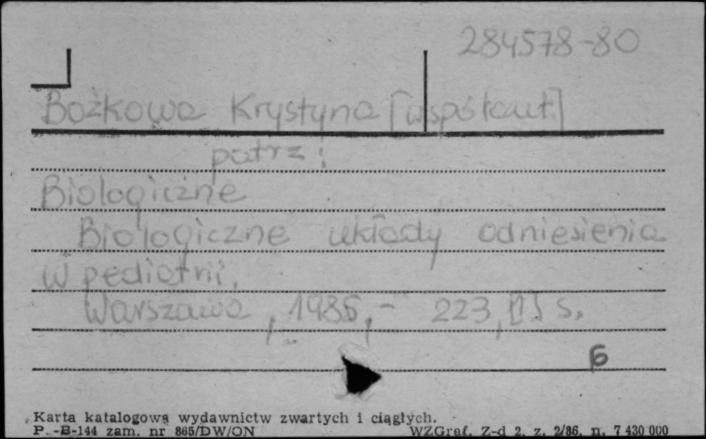 284578-80
Bożkowa Krystyna [współaut.]
patrz:
Biologiczne
Biologiczne układy odniesienia
w pediatrii.
Warszawa, 1986,- 223, [1] s.
6
Karta katalogowa wydawnictw zwartych i ciągłych.
P.-B-144 zam. nr 865/DW/ON WZGraf. Z-d 2. z. 2/86. n. 7 430 000